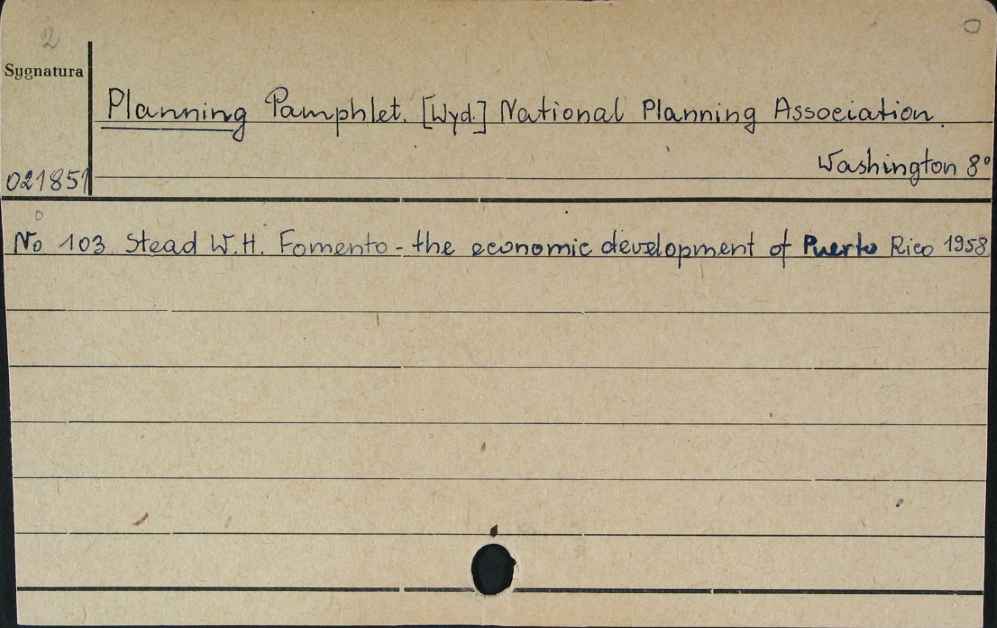 2
Sygnatura
Planning Pamphlet. [Wyd.] National Planning Association.
Washington 8°
021851
No 103 Stead W.H. Fomento - the economic development of Puerto Rico 1958